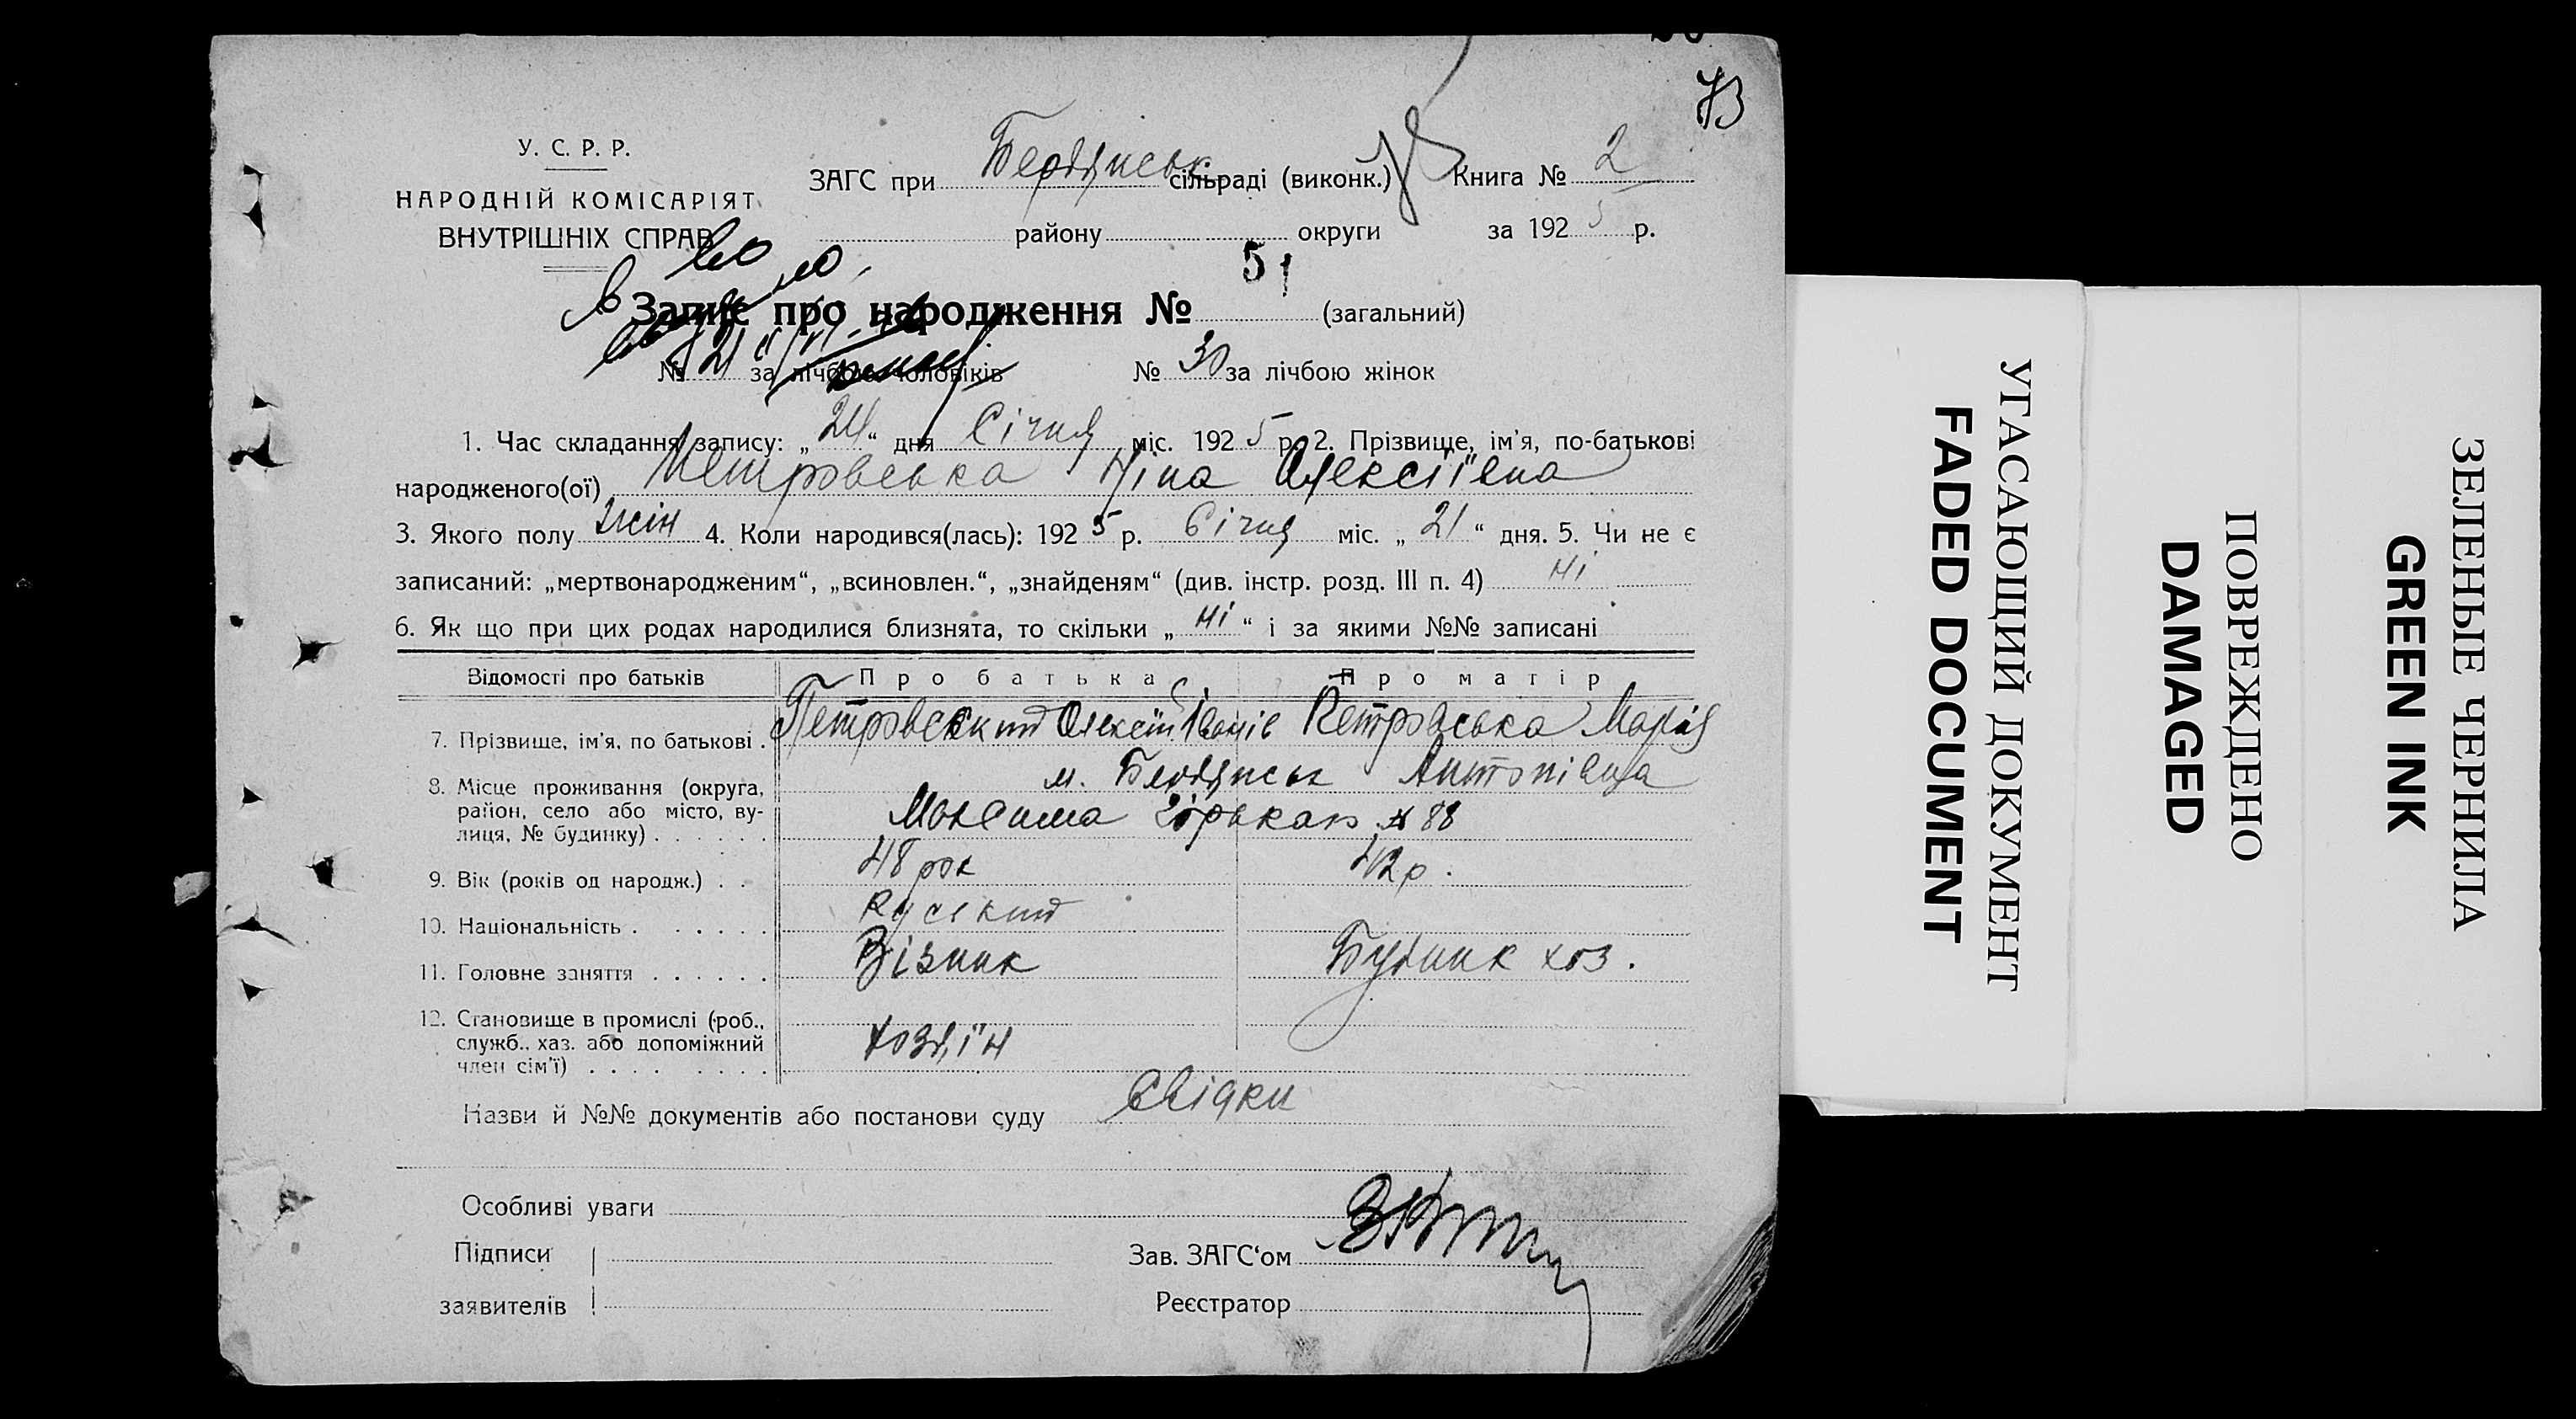 73
У. С. Р. Р.
НАРОДНІЙ КОМІСАРІЯТ
ВНУТРІШНІХ СПРАВ
ЗАГС при Бердянськ сільраді (виконк.) Книга № 2
району округи за 1925 р.
Запис про народження № 51 (загальний)
№ за лічбою чоловіків № 30 за лічбою жінок
1. Час складання запису: „24“ дня Січня міс. 1925 р. 2. Прізвище, ім’я, по-батькові
народженого(ої) Петровська Ніна Олексіївна
3. Якого полу жін 4. Коли народився(лась): 1925 р. Січня міс. „21“ дня. 5. Чи не є
записаний: „мертвонародженим“, „всиновлен.“, „знайденям“ (див. інстр. розд. III п. 4) ні
6. Як що при цих родах народилися близнята, то скільки „ні“ і за якими №№ записані
Відомості про батьків Про батька Про матір
7. Прізвище, ім’я, по батькові . Петровський Олексій Іванів Петровська Марія
Антонівна
8. Місце проживання (округа, м. Бердянськ
район, село або місто, ву-
лиця, № будинку) . . . . . Максима Горькаго № 88
9. Вік (років од народж.) . . 48 рок 42 р.
10. Національність . . . . . . Руський
11. Головне заняття . . . . . . Візник Будинк хоз.
12. Становище в промислі (роб.,
служб., хаз. або допоміжний Хозяїн
член сім’ї) . . . . . . . .
Назви й №№ документів або постанови суду Свідки
Особливі уваги
Підписи
заявителів
Зав. ЗАГС‘ом
Реєстратор
УГАСАЮЩИЙ ДОКУМЕНТ
FADED DOCUMENT
ПОВРЕЖДЕНО
DAMAGED
ЗЕЛЕНЫЕ ЧЕРНИЛА
GREEN INK